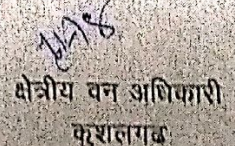 क्षेत्रीय वन अधिकारी
कुशलगढ़